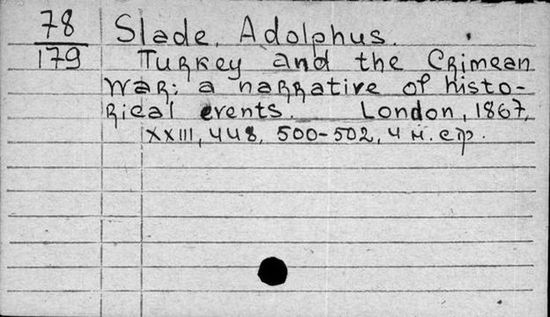 78
179
Slade, Adolphus.
Turkey and the Crimean
War: a narrative of histo-
rical events. London, 1867,
XXIII, 448, 500-502, 4 н. стр.